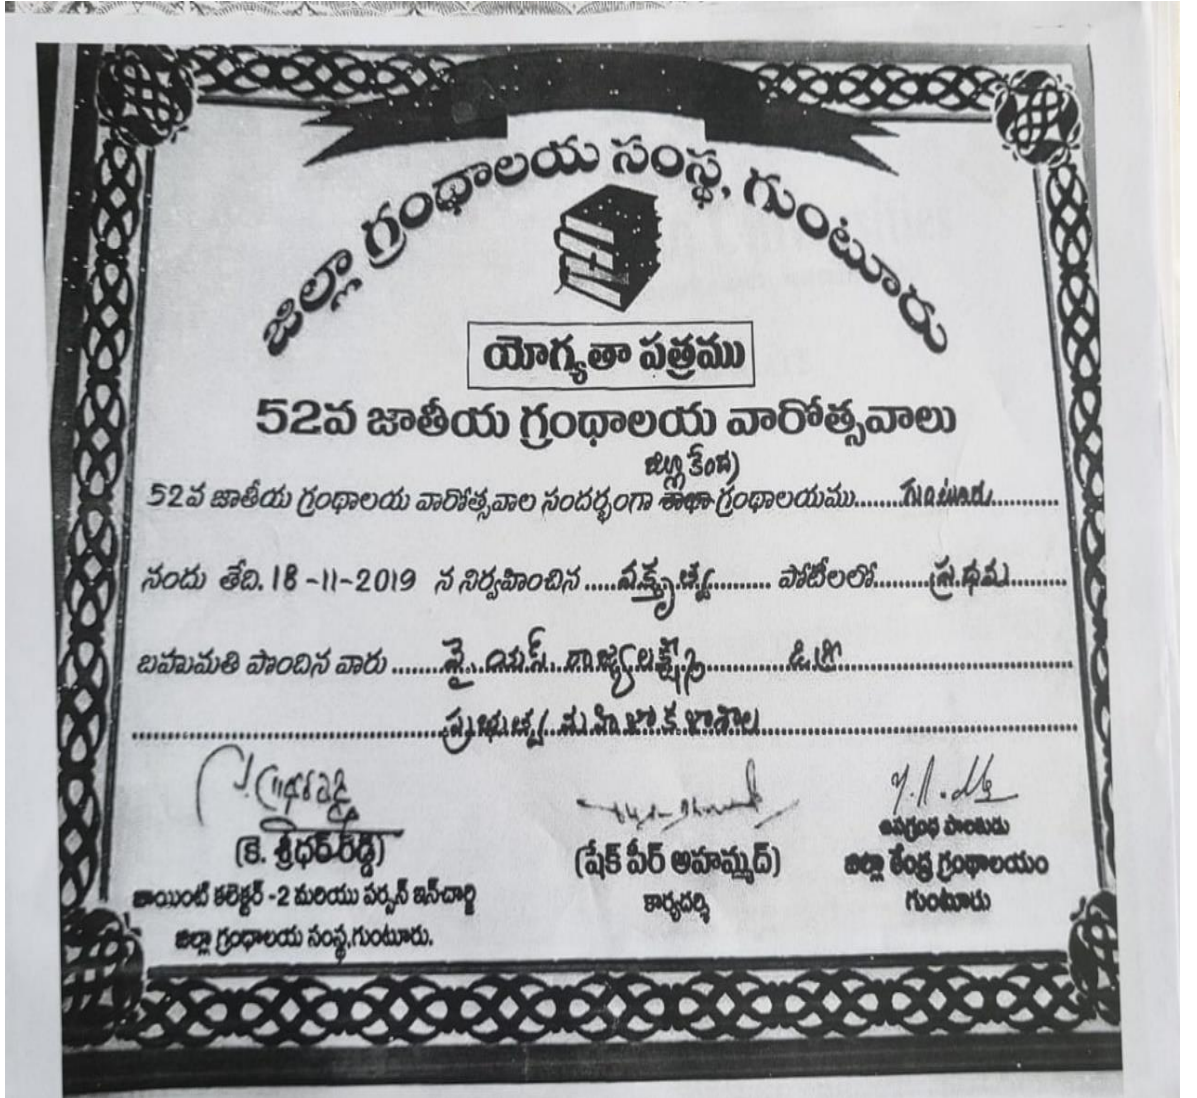 జిల్లా గ్రంథాలయ సంస్థ, గుంటూరు
యోగ్యతా పత్రము
52వ జాతీయ గ్రంథాలయ వారోత్సవాలు
జిల్లా కేంద్ర
52వ జాతీయ గ్రంథాలయ వారోత్సవాల సందర్భంగా శాఖా గ్రంథాలయము........గుంటూరు..........
నందు తేది. 18-11-2019 న నిర్వహించిన .....వక్తృత్వ......... పోటీలలో........ప్రథమ.........
బహుమతి పొందిన వారు ........వై. యస్. రాజ్యలక్ష్మి............... డిగ్రీ..............................
ప్రభుత్వ మహిళా కళాశాల
(కె. శ్రీధర్‌రెడ్డి)
జాయింట్ కలెక్టర్ -2 మరియు పర్సన్ ఇన్‌చార్జి
జిల్లా గ్రంథాలయ సంస్థ,గుంటూరు.
(షేక్ పీర్ అహమ్మద్)
కార్యదర్శి
ఉపగ్రంథ పాలకుడు
జిల్లా కేంద్ర గ్రంథాలయం
గుంటూరు